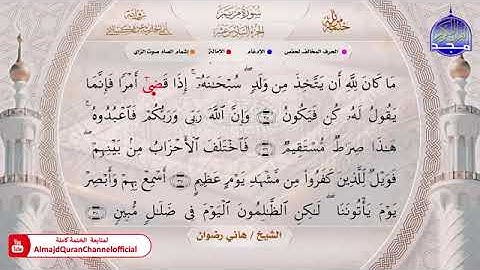 ختمة
سورة مريم
الحرف المخالف لحفص
الإدغام
الإمالة
إشمام الصاد صوت الزاي
مَا كَانَ لِلَّهِ أَن يَتَّخِذَ مِن وَلَدٍ سُبْحَـٰنَهُۥٓ إِذَا قَضَىٰٓ أَمْرًا فَإِنَّمَا
يَقُولُ لَهُۥ كُن فَيَكُونُ وَإِنَّ ٱللَّهَ رَبِّى وَرَبُّكُمْ فَٱعْبُدُوهُ
هَـٰذَا صِرَٰطٌ مُّسْتَقِيمٌ فَٱخْتَلَفَ ٱلْأَحْزَابُ مِنۢ بَيْنِهِمْ
فَوَيْلٌ لِّلَّذِينَ كَفَرُوا۟ مِن مَّشْهَدِ يَوْمٍ عَظِيمٍ أَسْمِعْ بِهِمْ وَأَبْصِرْ
يَوْمَ يَأْتُونَنَا لَـٰكِنِ ٱلظَّـٰلِمُونَ ٱلْيَوْمَ فِى ضَلَـٰلٍ مُّبِينٍ
الشيخ / هاني رضوان
لمتابعة الختمة كاملة
AlmajdQuranChannelofficial